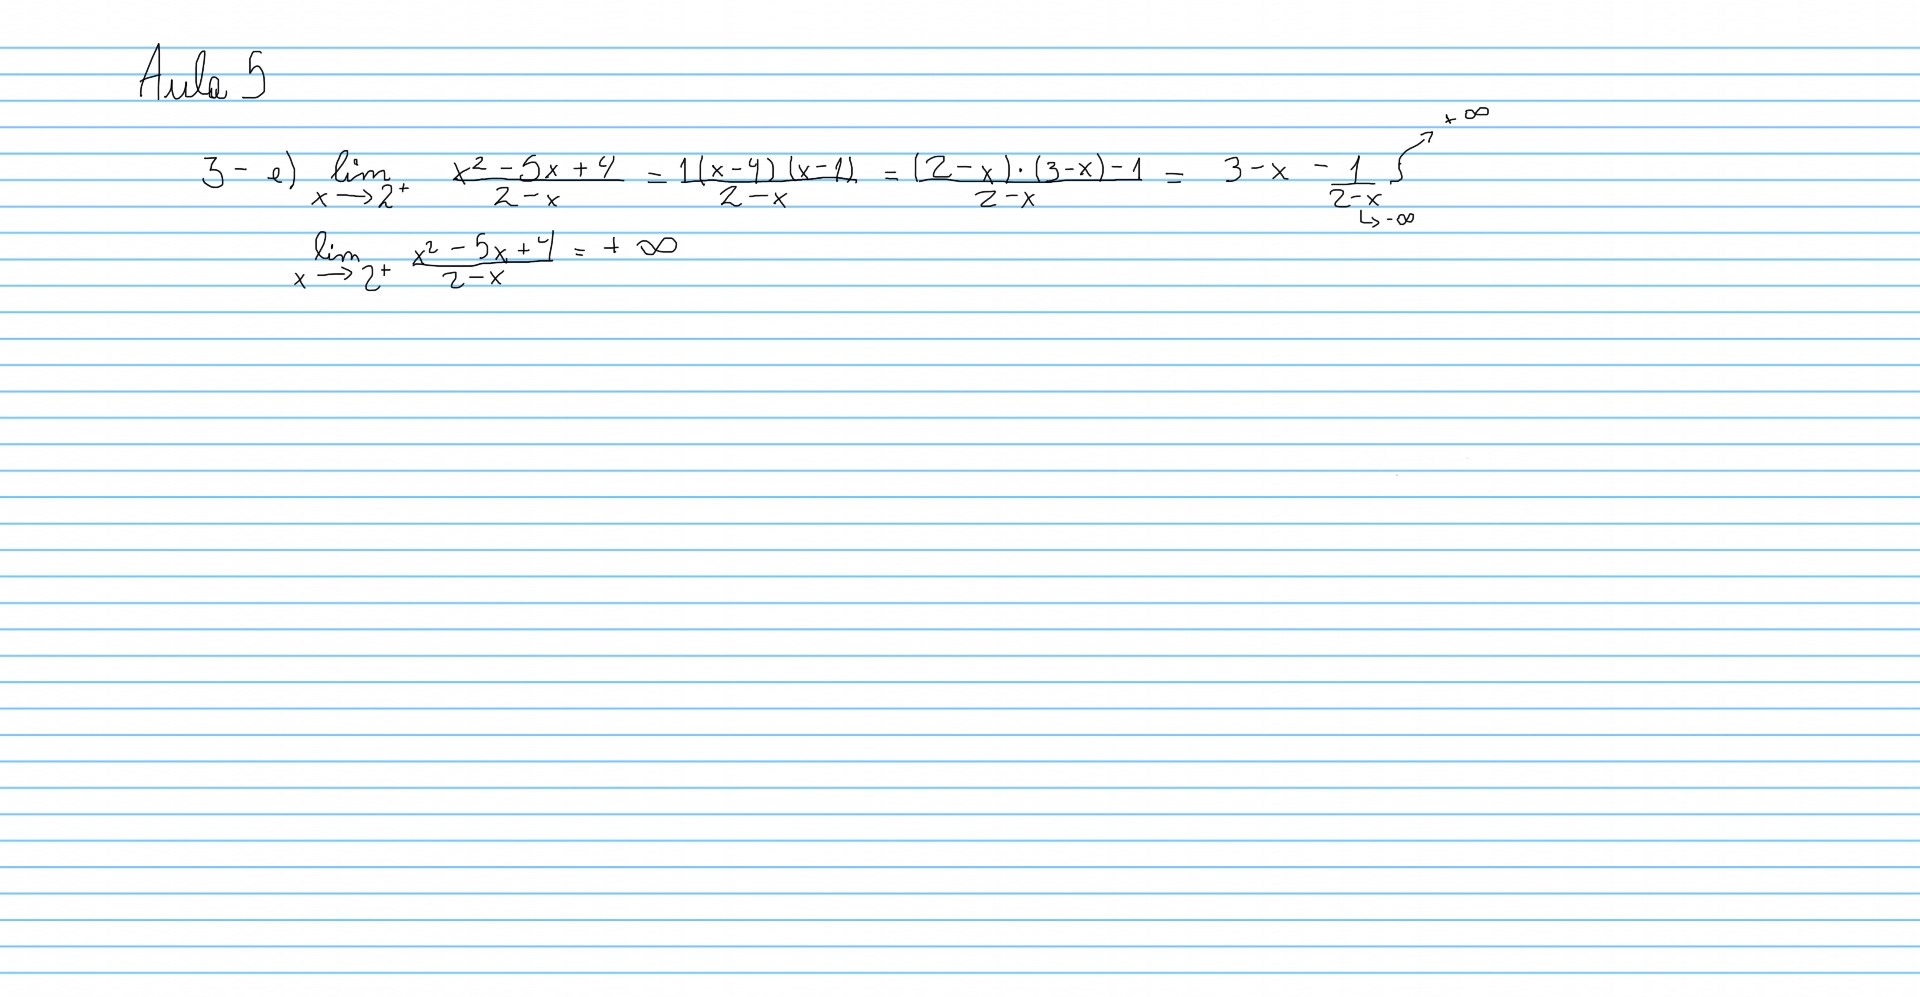 Aula 5
3- e) lim x→2⁺ (x² - 5x + 4)/(2-x) = 1(x-4)(x-1)/(2-x) = ((2-x)·(3-x)-1)/(2-x) = 3-x - 1/(2-x) ↳ -∞ ↗ +∞
lim x→2⁺ (x² - 5x + 4)/(2-x) = + ∞